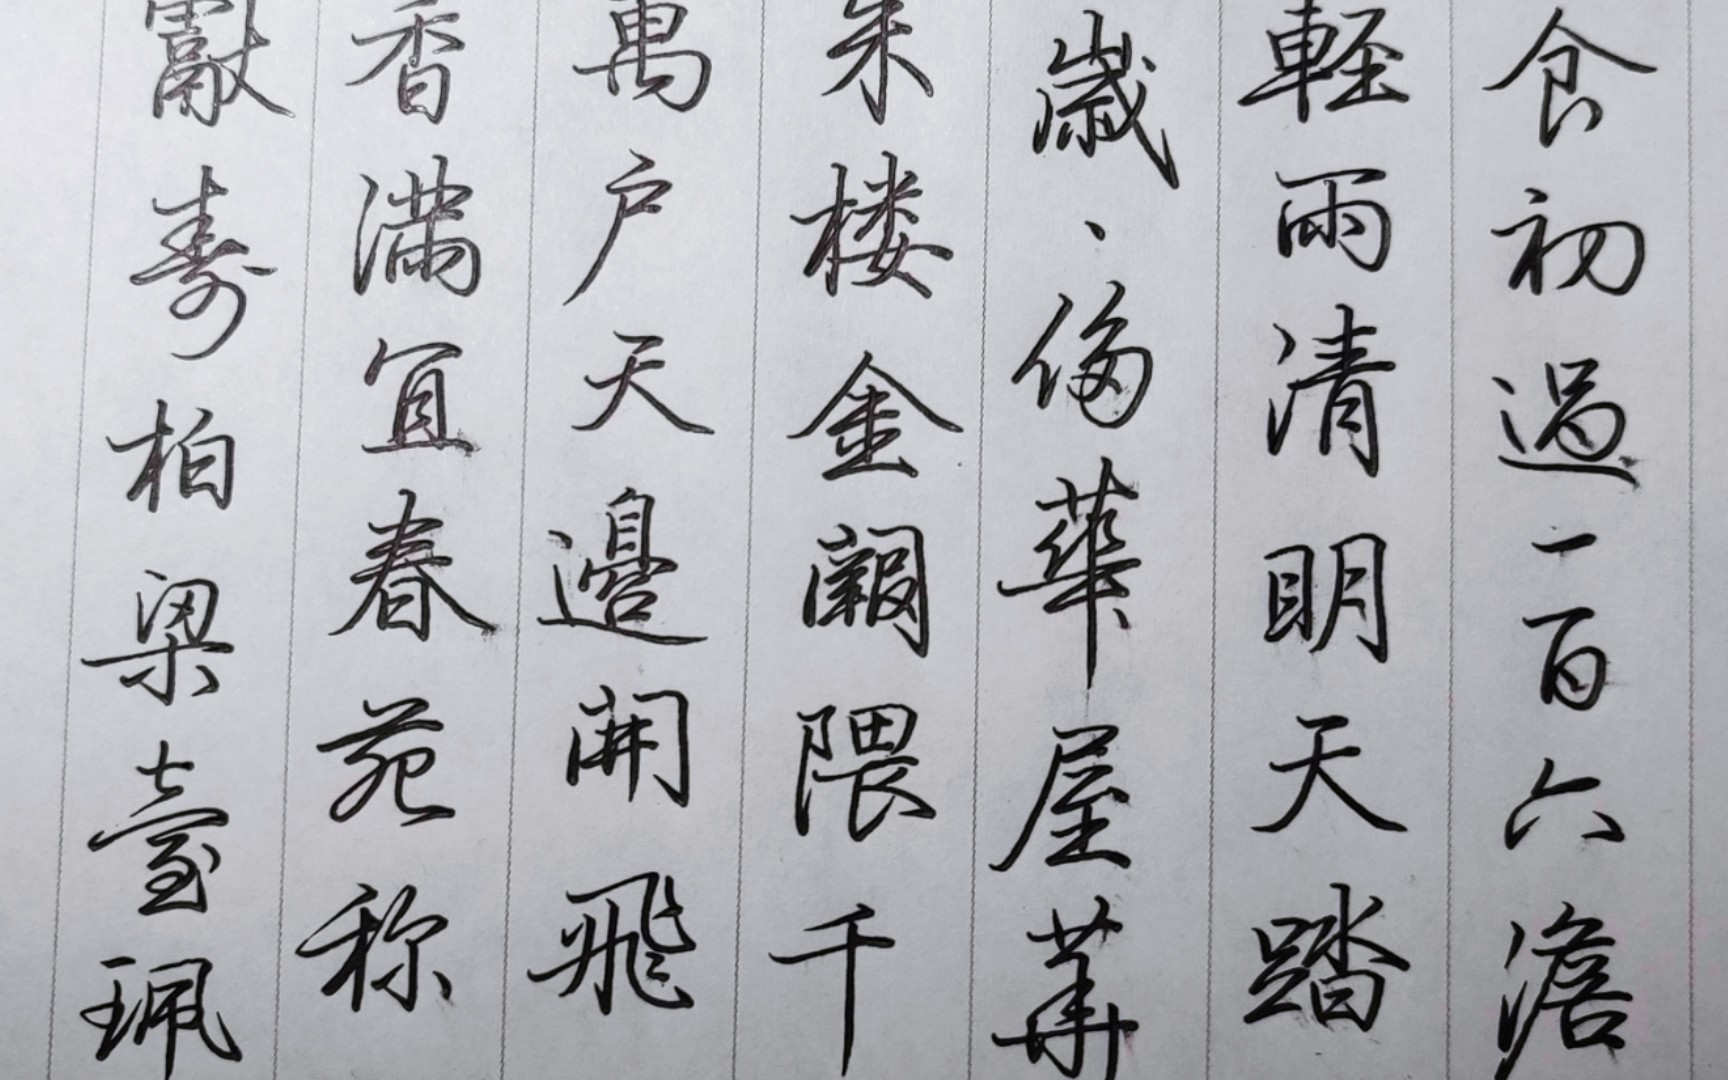 食初過一百六澹
輕雨清明天踏
歲、侈華屋葬
朱楼金闕隈千
萬户天邊開飛
香滿宜春苑称
壽柏梁臺珮